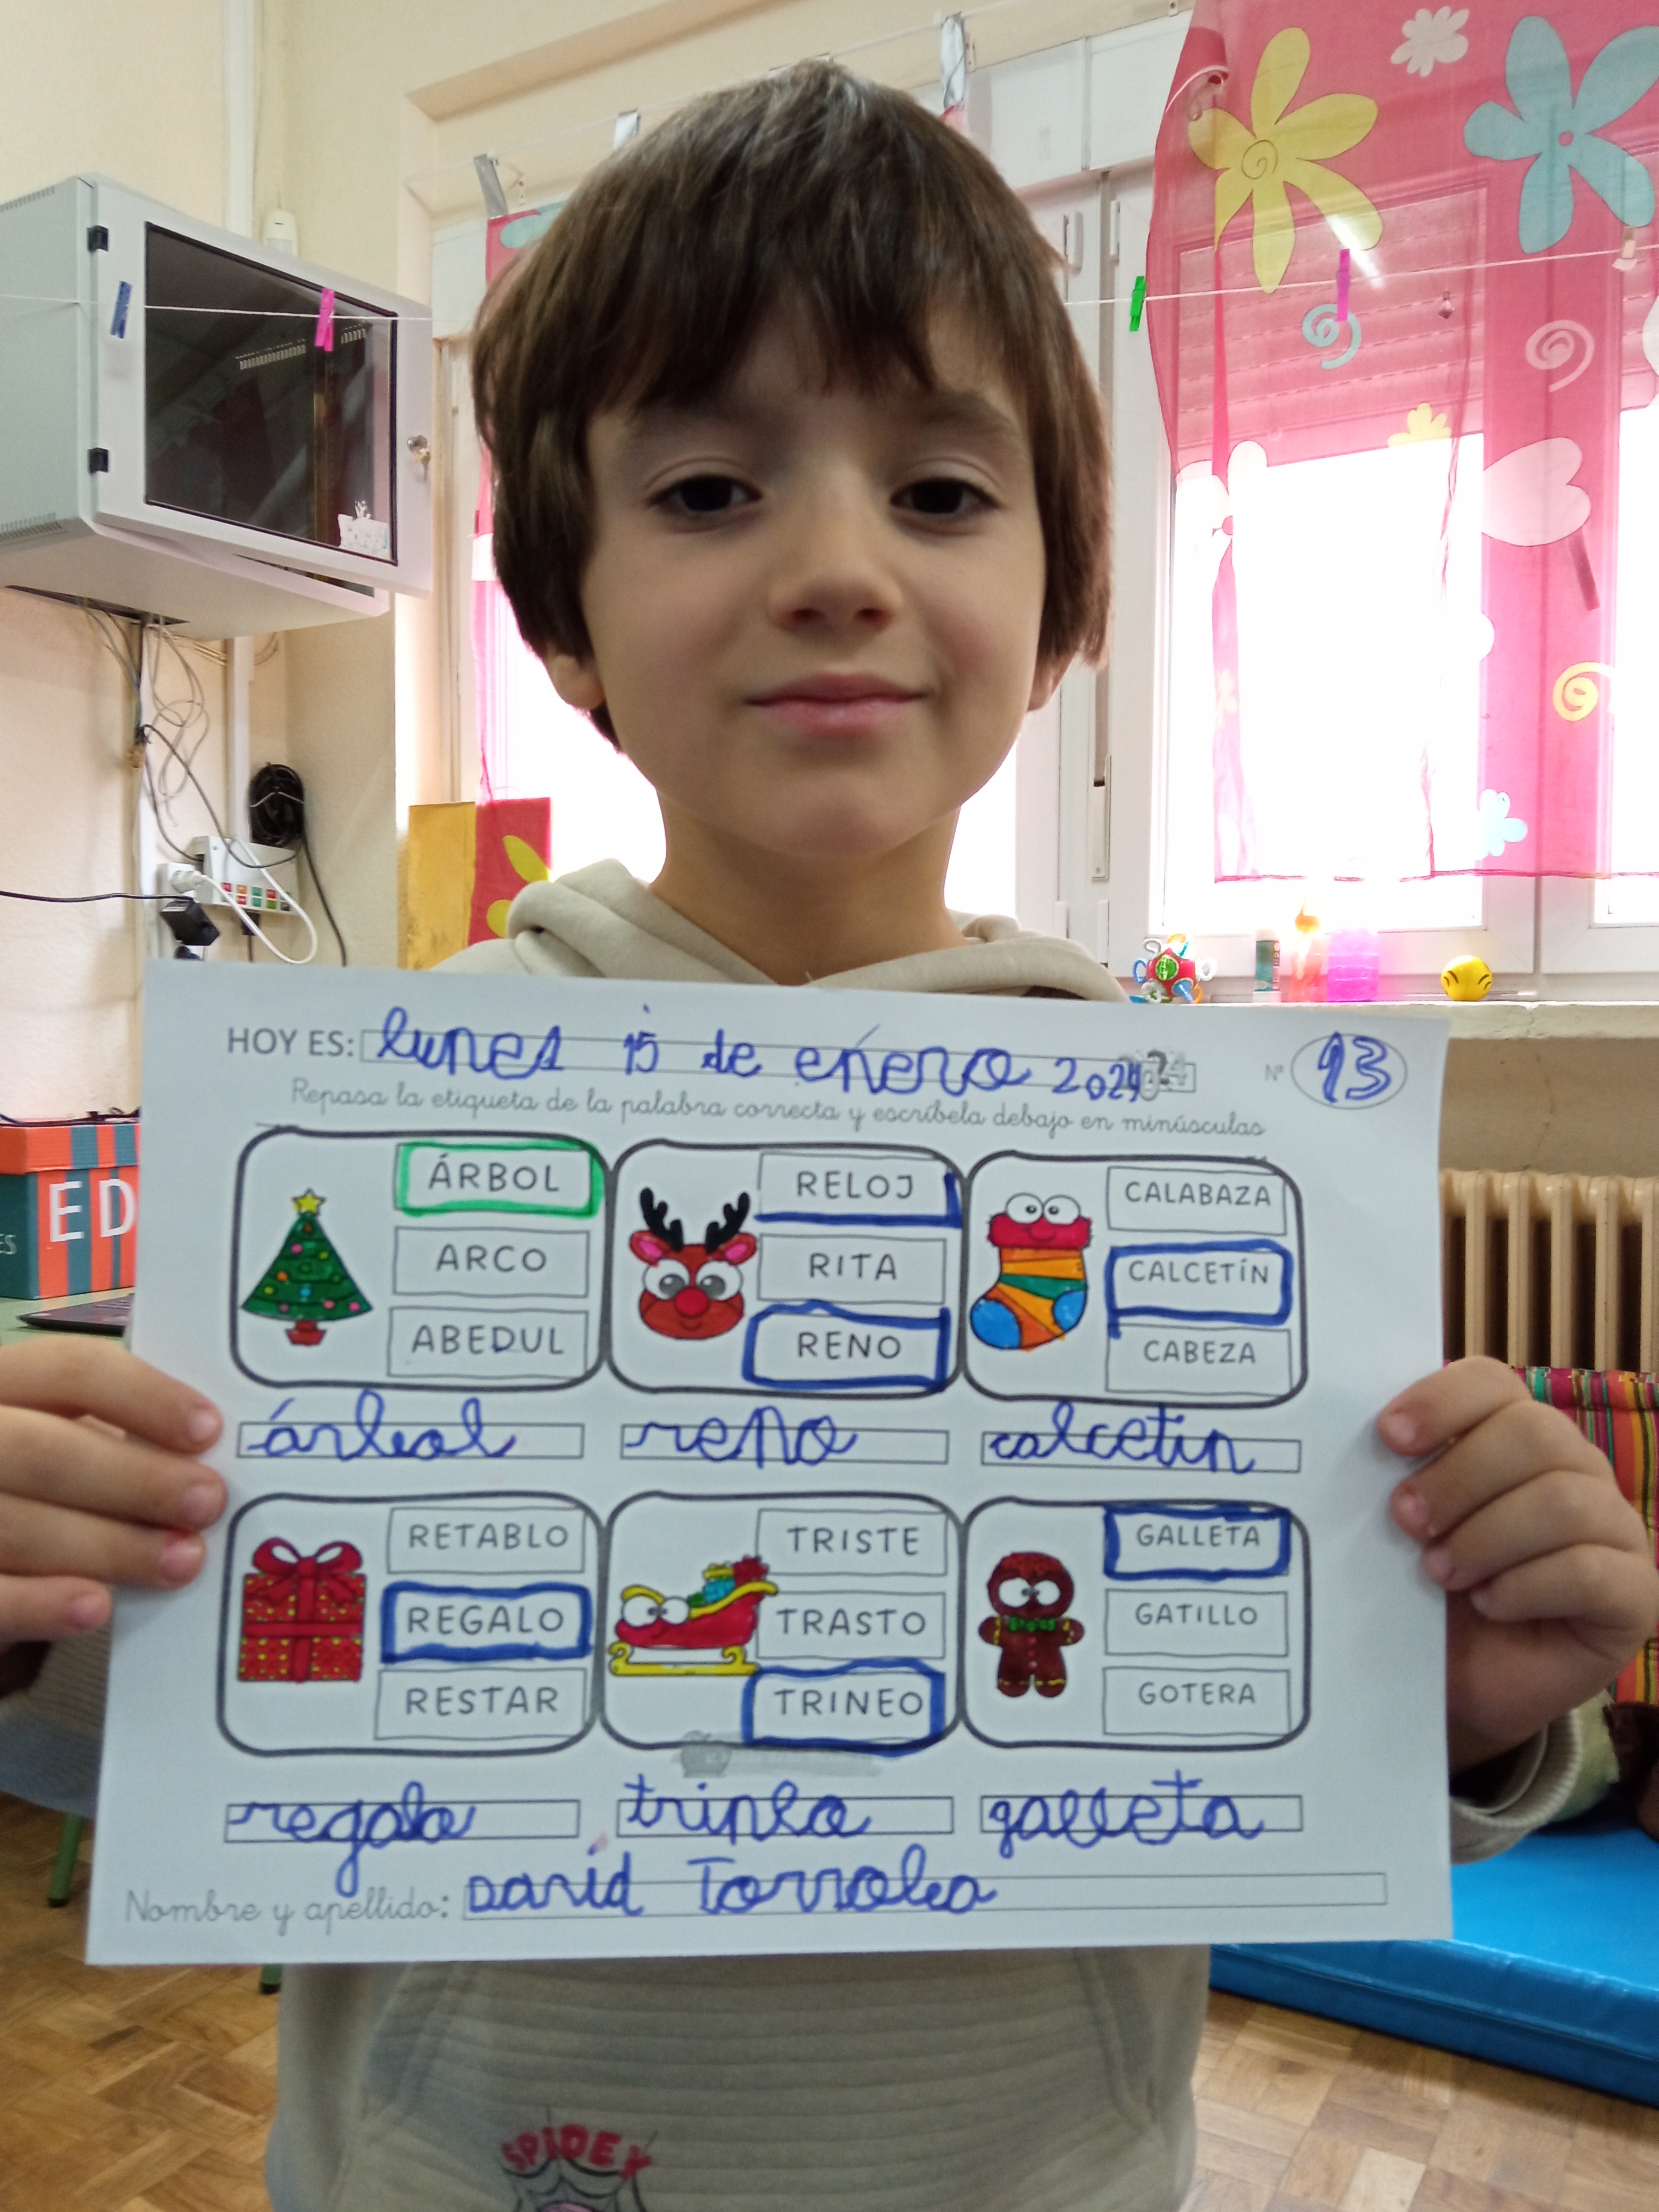 HOY ES: lunes 15 de enero 2024
Nº 13
Repasa la etiqueta de la palabra correcta y escríbela debajo en minúsculas
ÁRBOL
ARCO
ABEDUL
RELOJ
RITA
RENO
CALABAZA
CALCETÍN
CABEZA
árbol
reno
calcetin
RETABLO
REGALO
RESTAR
TRISTE
TRASTO
TRINEO
GALLETA
GATILLO
GOTERA
regalo
trineo
galleta
Nombre y apellido: David Torralba
ED
ES
SPIDEY